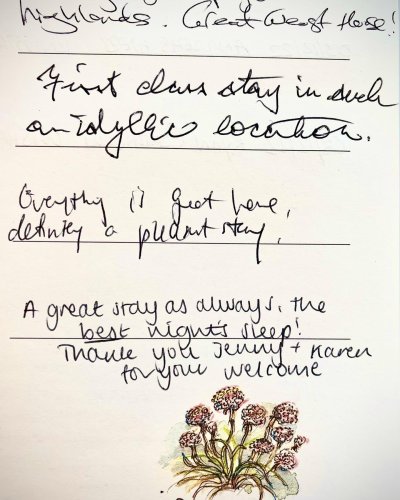 highlands. Great Guest House!
First class stay in such
an idyllic location.
Everything is great here,
definitely a pleasant stay.
A great stay as always, the
best night's sleep!
Thank you Jenny + Karen
for your welcome